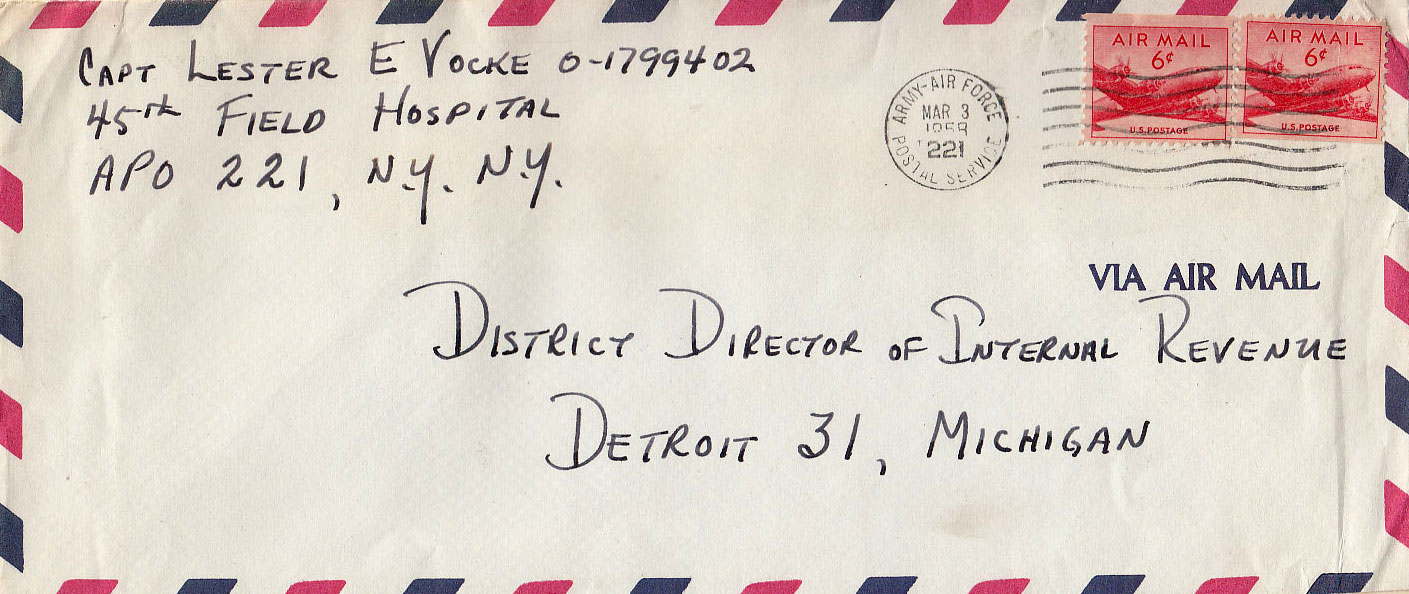 CAPT LESTER E VOCKE O-1799402
45th FIELD HOSPITAL
APO 221, N.Y. N.Y.
ARMY-AIR FORCE
MAR 3
221
POSTAL SERVICE
AIR MAIL
6¢
U.S. POSTAGE
AIR MAIL
6¢
U.S. POSTAGE
VIA AIR MAIL
DISTRICT DIRECTOR OF INTERNAL REVENUE
DETROIT 31, MICHIGAN